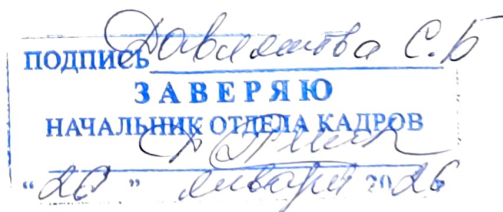 ПОДПИСЬ Давлятова С.Б
ЗАВЕРЯЮ
НАЧАЛЬНИК ОТДЕЛА КАДРОВ
“20” января 2026